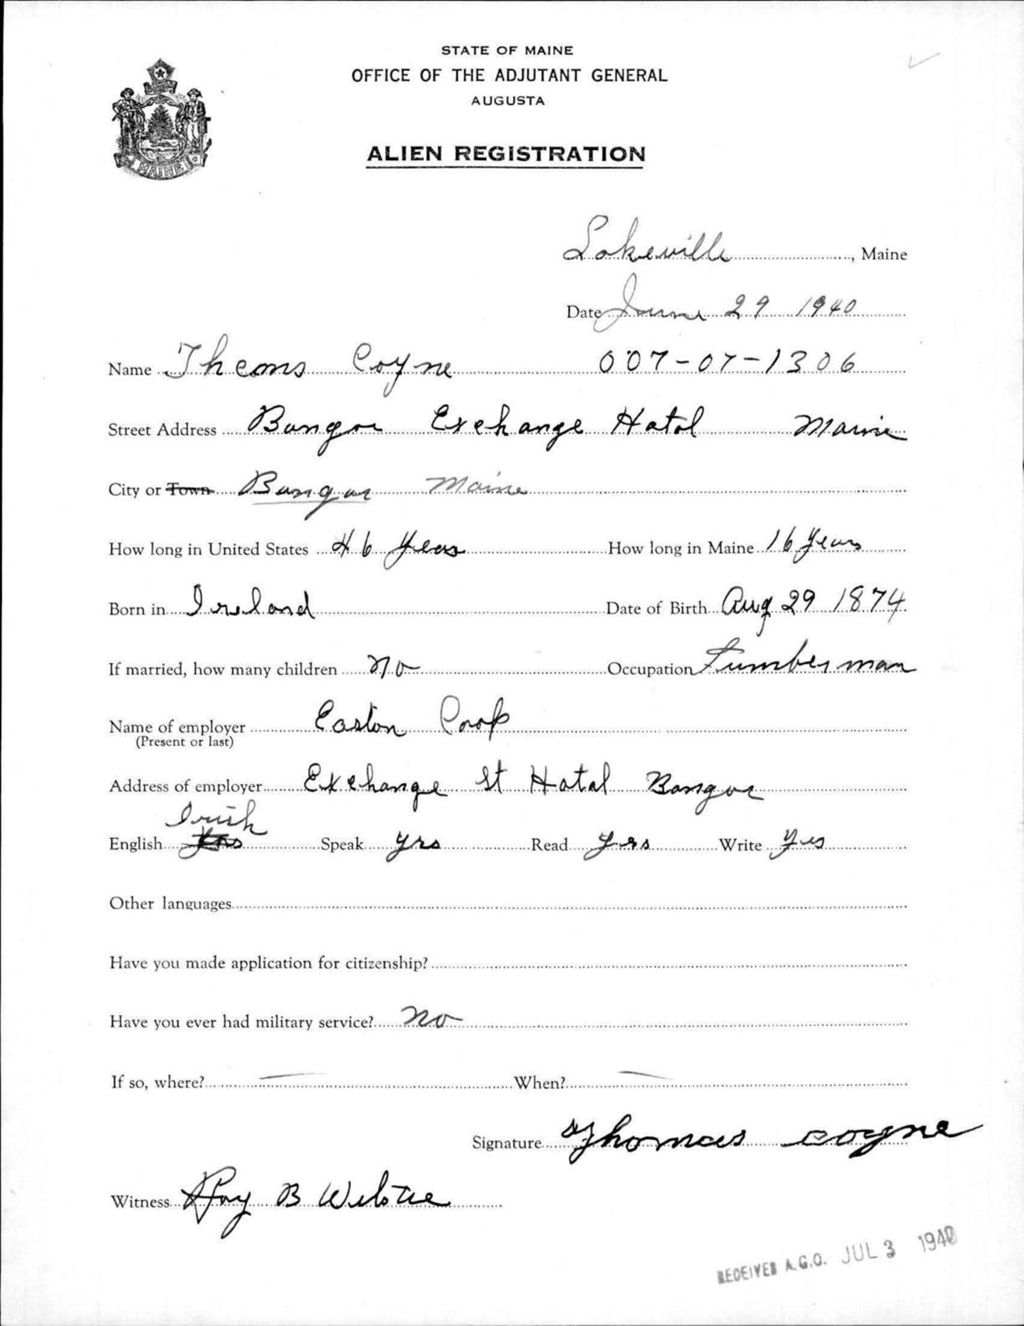 STATE OF MAINE
OFFICE OF THE ADJUTANT GENERAL
AUGUSTA
ALIEN REGISTRATION
Lakeville, Maine
Date June 29 1940
Name Thomas Coyne 007-07-1306
Street Address Bangor Exchange Hotal Maine
City or Town Bangor Maine
How long in United States 46 Years How long in Maine 16 Years
Born in Ireland Date of Birth Aug 29 1874
If married, how many children No Occupation Lumberman
Name of employer Easton
(Present or last)
Address of employer Exchange St Hotal Bangor
Irish
English Yes Speak Yes Read Yes Write Yes
Other languages
Have you made application for citizenship?
Have you ever had military service? No
If so, where? — When? —
Signature Thomas Coyne
Witness Roy B
RECEIVED A.G.O. JUL 3 1940
MAINE